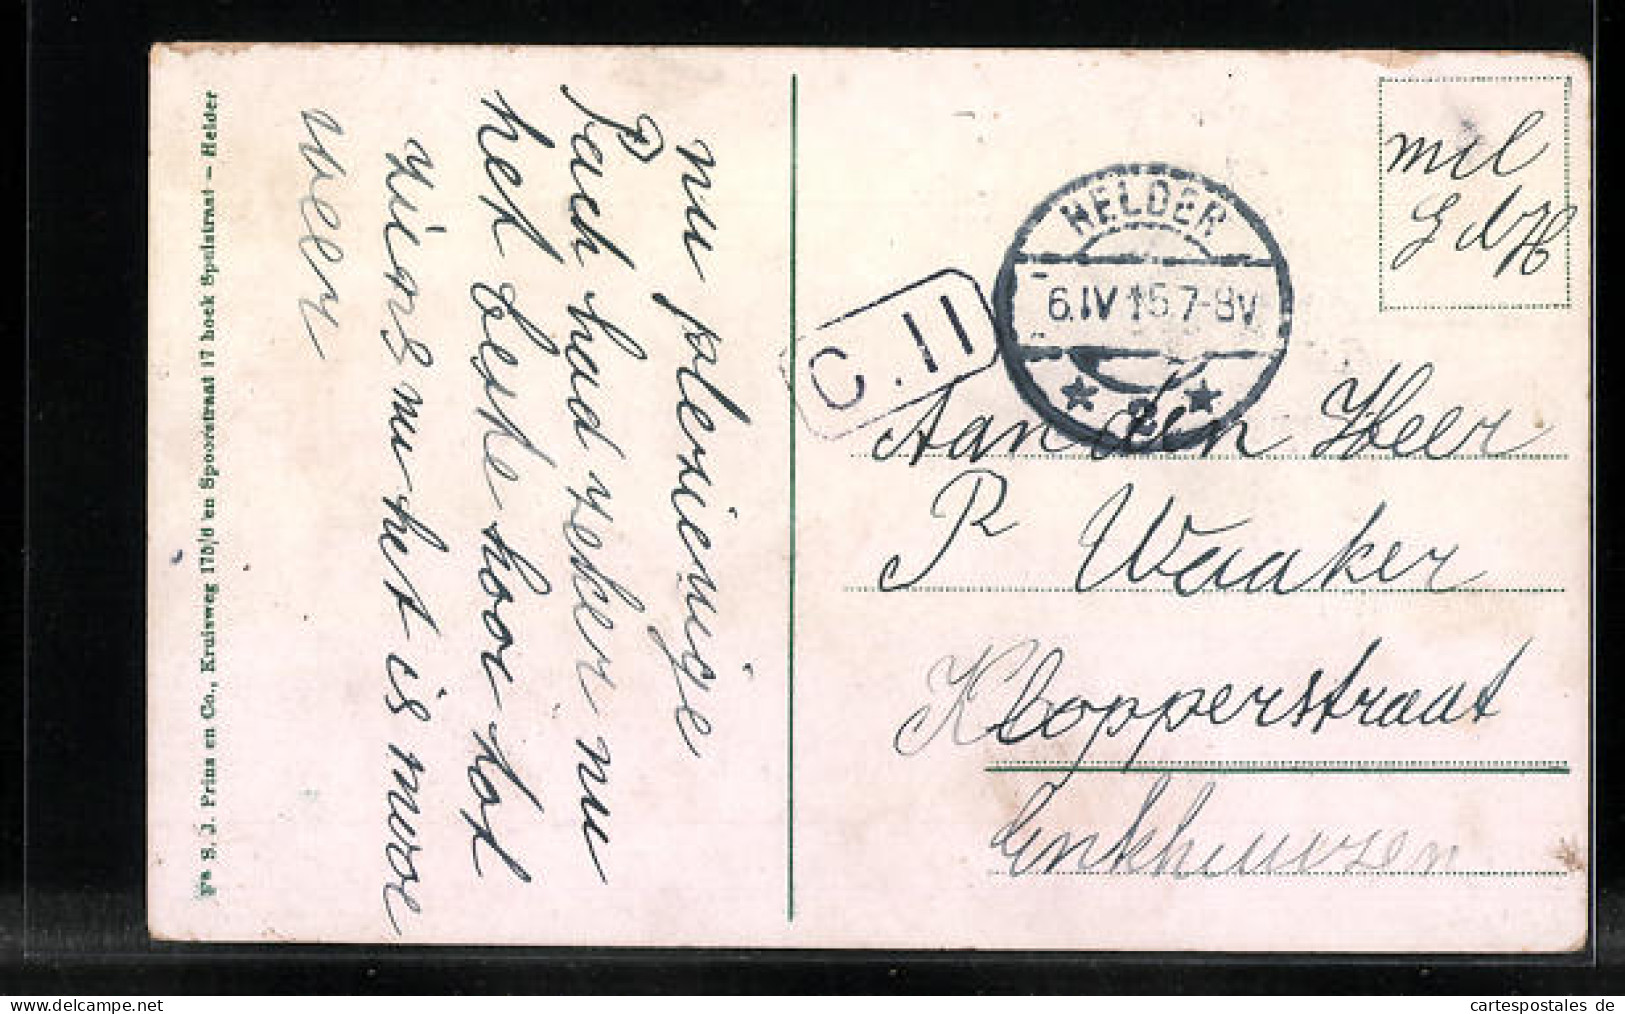 nu plezierige
Pach had zeker nu
het beste hoor tot
Niens nu het is mooi
weer
Fa S. J. Prins en Co., Kruisweg 175/6 en Spoorstraat 17 hoek Spuistraat – Helder
mil
HELDER
6.IV 15 7-8V
2
C.11
Aan den Heer
P Waaker
Klopperstraat
Enkhuizen
cartespostales de